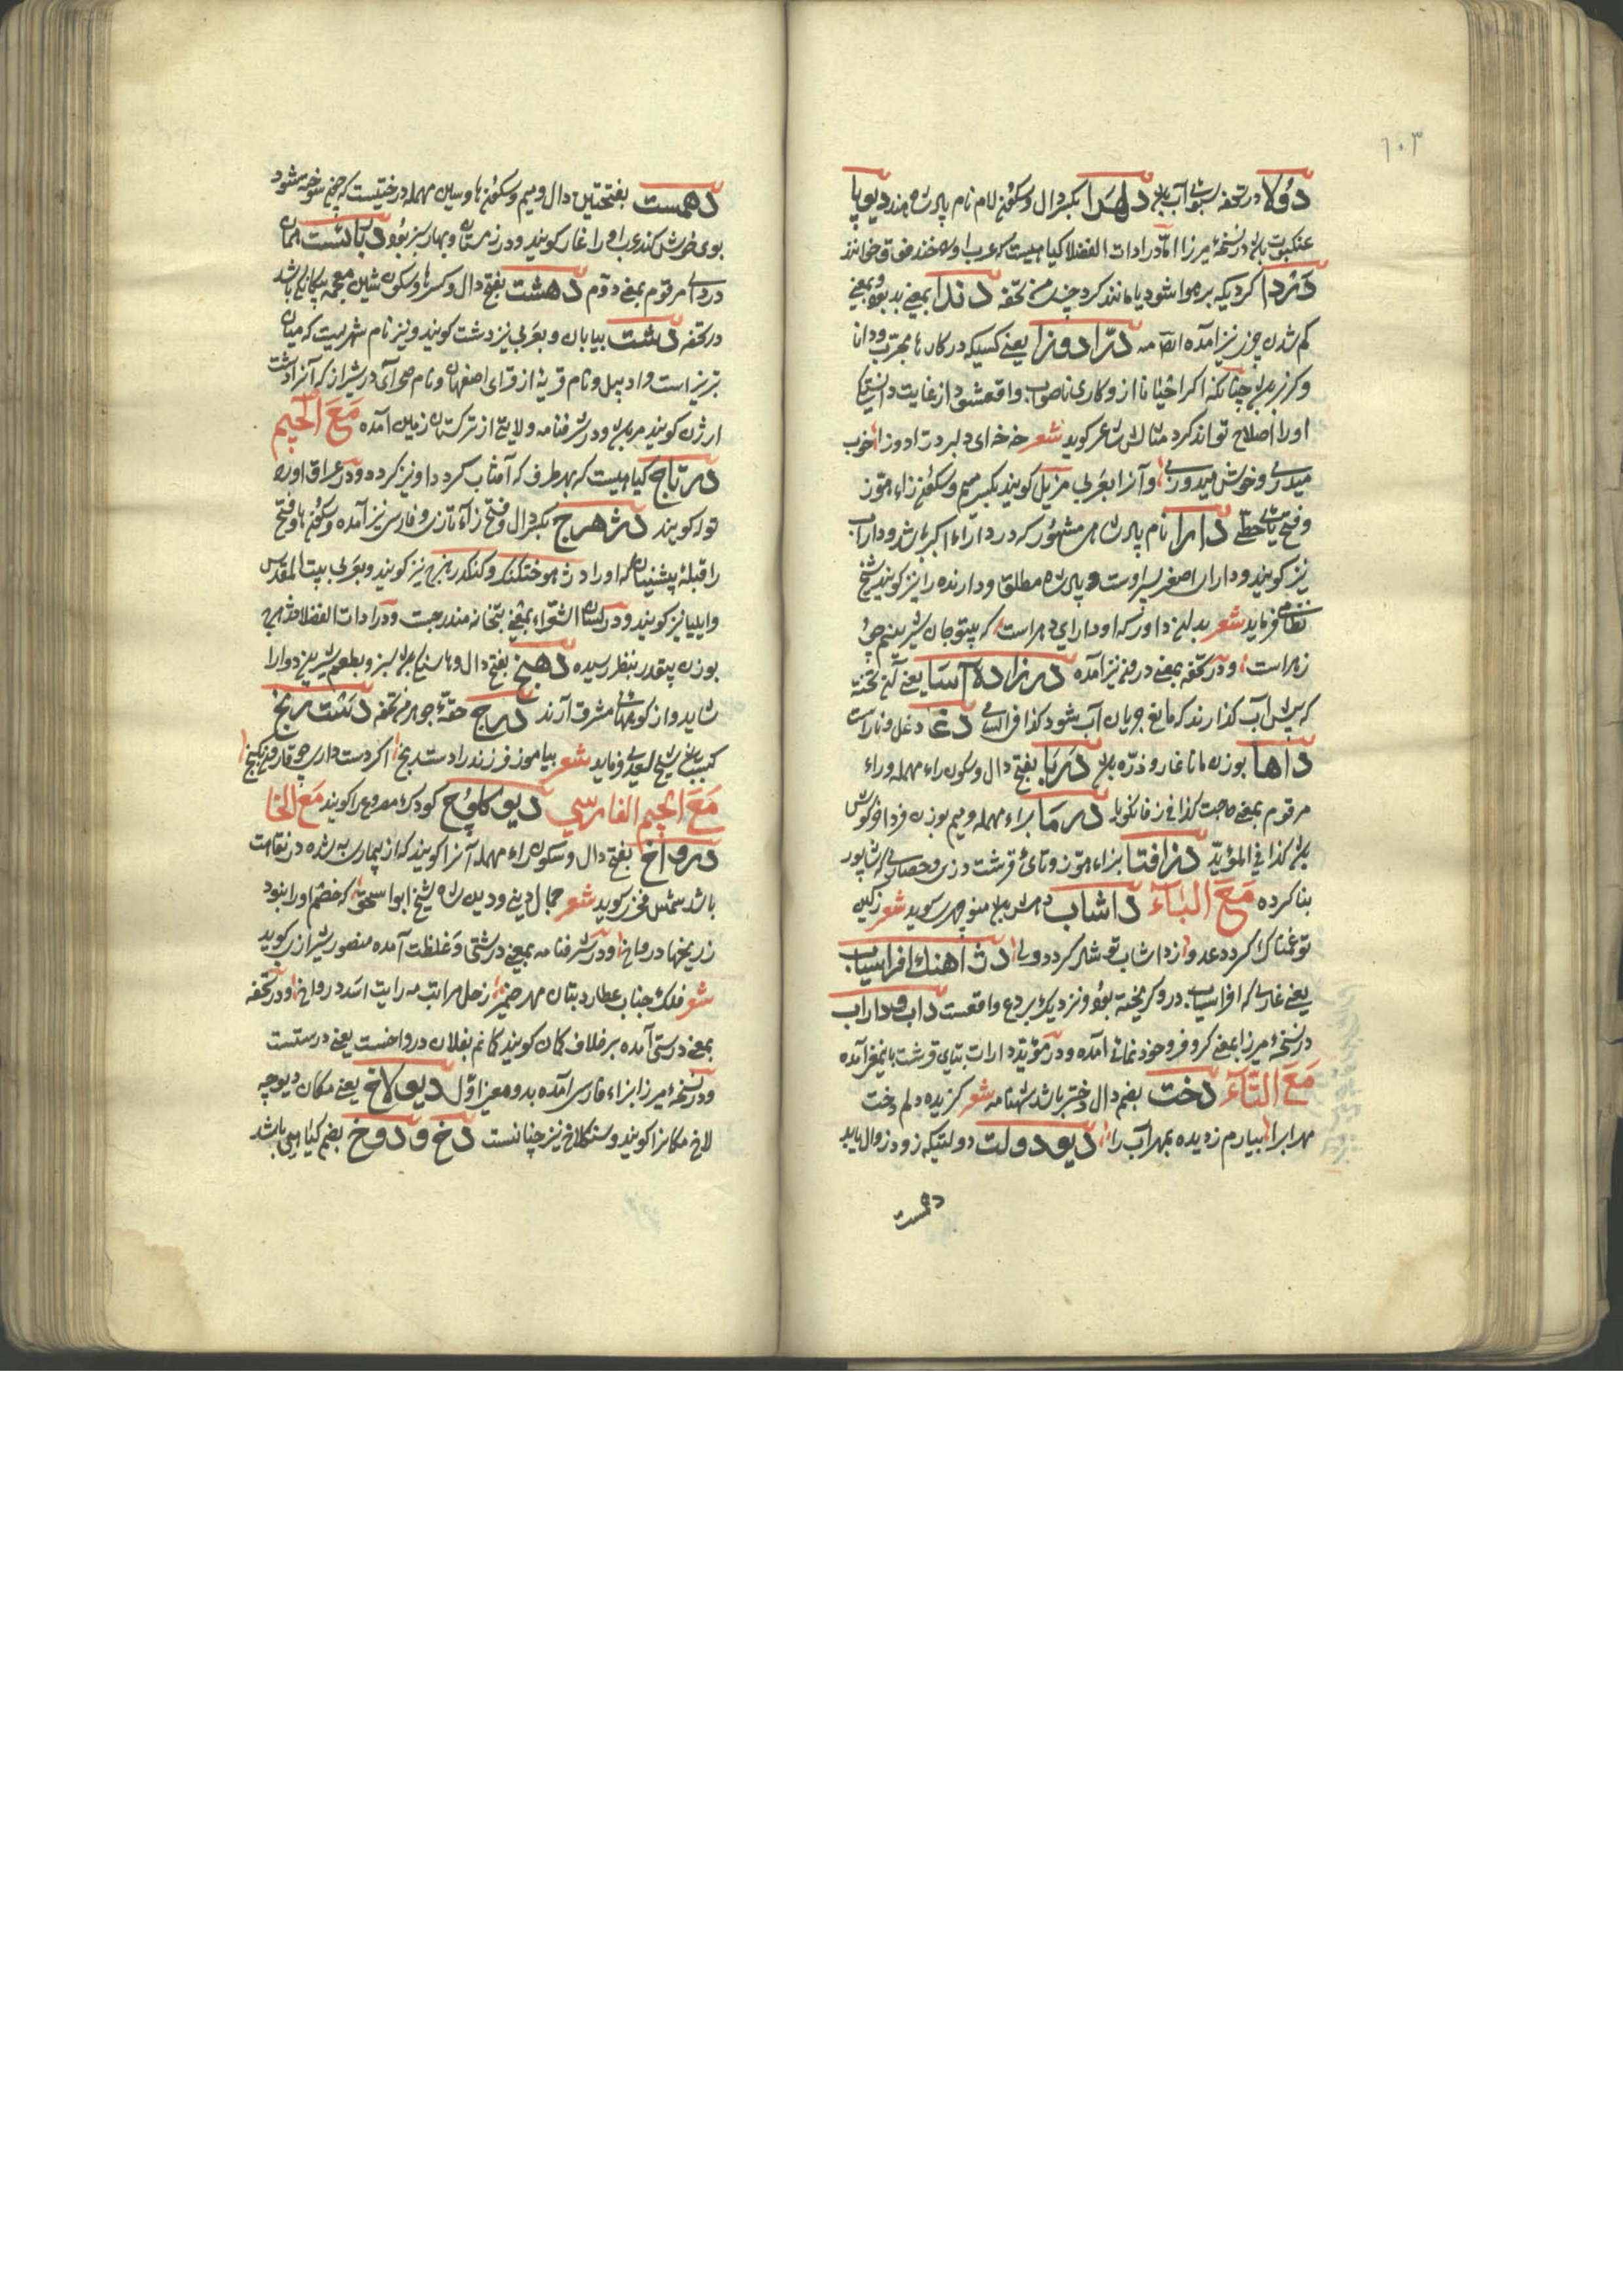 ۱۰۳
دولا در تحفه سبوی آب دلهرا بکسر دال و سکون لام نام پادشاه هند دیوپا
عنکبوت در نسخهٔ میرزا اما در ادات الفضلا کیاهیست که عرب او را خوانند
کردیکه بر هوا شود یا مانند کرد من تحفه دندا بمعنی بد بود و بمعنی
کم شدن چیز نیز آمده ایضا منه درّادوزا یعنی کسیکه در کارها مجرب و دانا
و کربز چنانکه اکر احیانا از و کاری ناصواب واقع شود از غایت دانستکی
او را اصلاح تواند کرد مثالش شاعر کوید شعر خه خه ای دلبر درادوزا خوب
میدری و خوش میدوزی و آنرا بعربی مزیل کویند بکسر میم و سکون زاء هوز
و فتح یای حطی دارا نام پادشاهی مشهور که در داراء اکبر باشد و داراب
نیز کویند و داراء اصغر پسر اوست و پادشاه مطلق و دارنده را نیز کویند شیخ
نظامی فرماید شعر بدان داور که او دارای دهر است که بیتو جان شیرینم چو
زهر است و در تحفه بمعنی درون نیز آمده درزاده آسیا یعنی آن تخته
که پیش آب کذارند که مانع جریان آب شود کذا فی السامی دغا دغل و ناراست
داها بوزن مانا غار و دره دربا بفتح دال و سکون راء مهمله و راء
مرقوم بمعنی حاجت کذا فی زفانکویا درما براء مهمله و میم بوزن فردا خرکوش
کذا فی المؤید دزافتا بزاء هوز و تای قرشت دزی و حصاری که شاپور
بنا کرده مع الباء داشاب دهش منوچهری کوید شعر زکین
تو غمناک کردد عدو ز داشاب تو شاد کردد ولی دث آهنک افراسیاب
یعنی غاری که افراسیاب در و کریخته بود و نزدیک بردع واقعست داب و داراب
در نسخهٔ میرزا بمعنی کر و فر و خودنمائی آمده و در مؤید دارات بتای قرشت باینمعنی آمده
مع التاء دخت بضم دال دختر باشد شهنامه شعر کزیده دلم دخت
مهراب را بیارم ز دیده بمهر آب را دیو دولت دولتیکه زود زوال یابد
دهمست
دهمست بفتحتین دال و میم و سکون ها و سین مهمله درختیست که چون سوخته شود
بوی خوش کند عرب او را غار کویند و در زمستان و بهار سبز بود دبانشت همان
دردی مرقوم بمعنی دوم دهشت بفتح دال و کسر ها و سکون شین معجمه باشد
در تحفه دشت بیابان و بعربی نیز دشت کویند و نیز نام شهریست که میان
تبریز است و اردبیل و نام قریهٔ از قرای اصفهان و نام صحرائی در شیراز که آنرا دشت
ارژن کویند و در شرفنامه ولایتی از ترکستان زمین آمده مع الجیم
درتاج کیاهیست که بهر طرف که آفتاب کردد او نیز کردد و در عراق او را
توله کویند دژهرج بکسر دال و فتح زاء تازی و فارسی نیز آمده و سکون ها و فتح
را قبلهٔ پیشینیان که او را دث هوختکنک و کنکدزهرج نیز کویند و بعربی بیت المقدس
و ایلیا نیز کویند و در لسان الشعراء بمعنی بتخانه مندرجست و در ادات الفضلا
بوزن پیقدر بنظر رسیده دهنج بفتح دال و ها سنک سبز و بطعم شیرین دوا را
شاید و از کوههای مشرق آرند درج حقهٔ جوهر من تحفه دشت رنج
کسب شیخ سعدی فرماید شعر بیاموز فرزند را دسترنج اکر دست داری چو قارون بکنج
مع الجیم الفارسی دیوکلوچ کودک مصروع را کویند مع الخا
درواخ بفتح دال و سکون راء مهمله آنرا کویند که از بیماری به شده در نقاهت
باشد شمس فخری کوید شعر جمال دینی و دین شاه شیخ ابو اسحق که خصم او را نبود
ز رنجها درواخ و در شرفنامه بمعنی درشتی و غلظت آمده منصور شیرازی کوید
شعر فلک جناب عطارد بنان مهر ضمیر زحل مراتب مه رایت اسد درواخ و در تحفه
بمعنی درستی آمده بر خلاف کمان کویند کمانم بفلان درواخست یعنی درستست
و در نسخهٔ میرزا بزاء فارسی آمده بدو معنی اول دیولاخ یعنی مکان دیو چه
لاخ مکانرا کویند و سنکلاخ نیز چنانست دخ و دوخ بضم کیاهی باشد